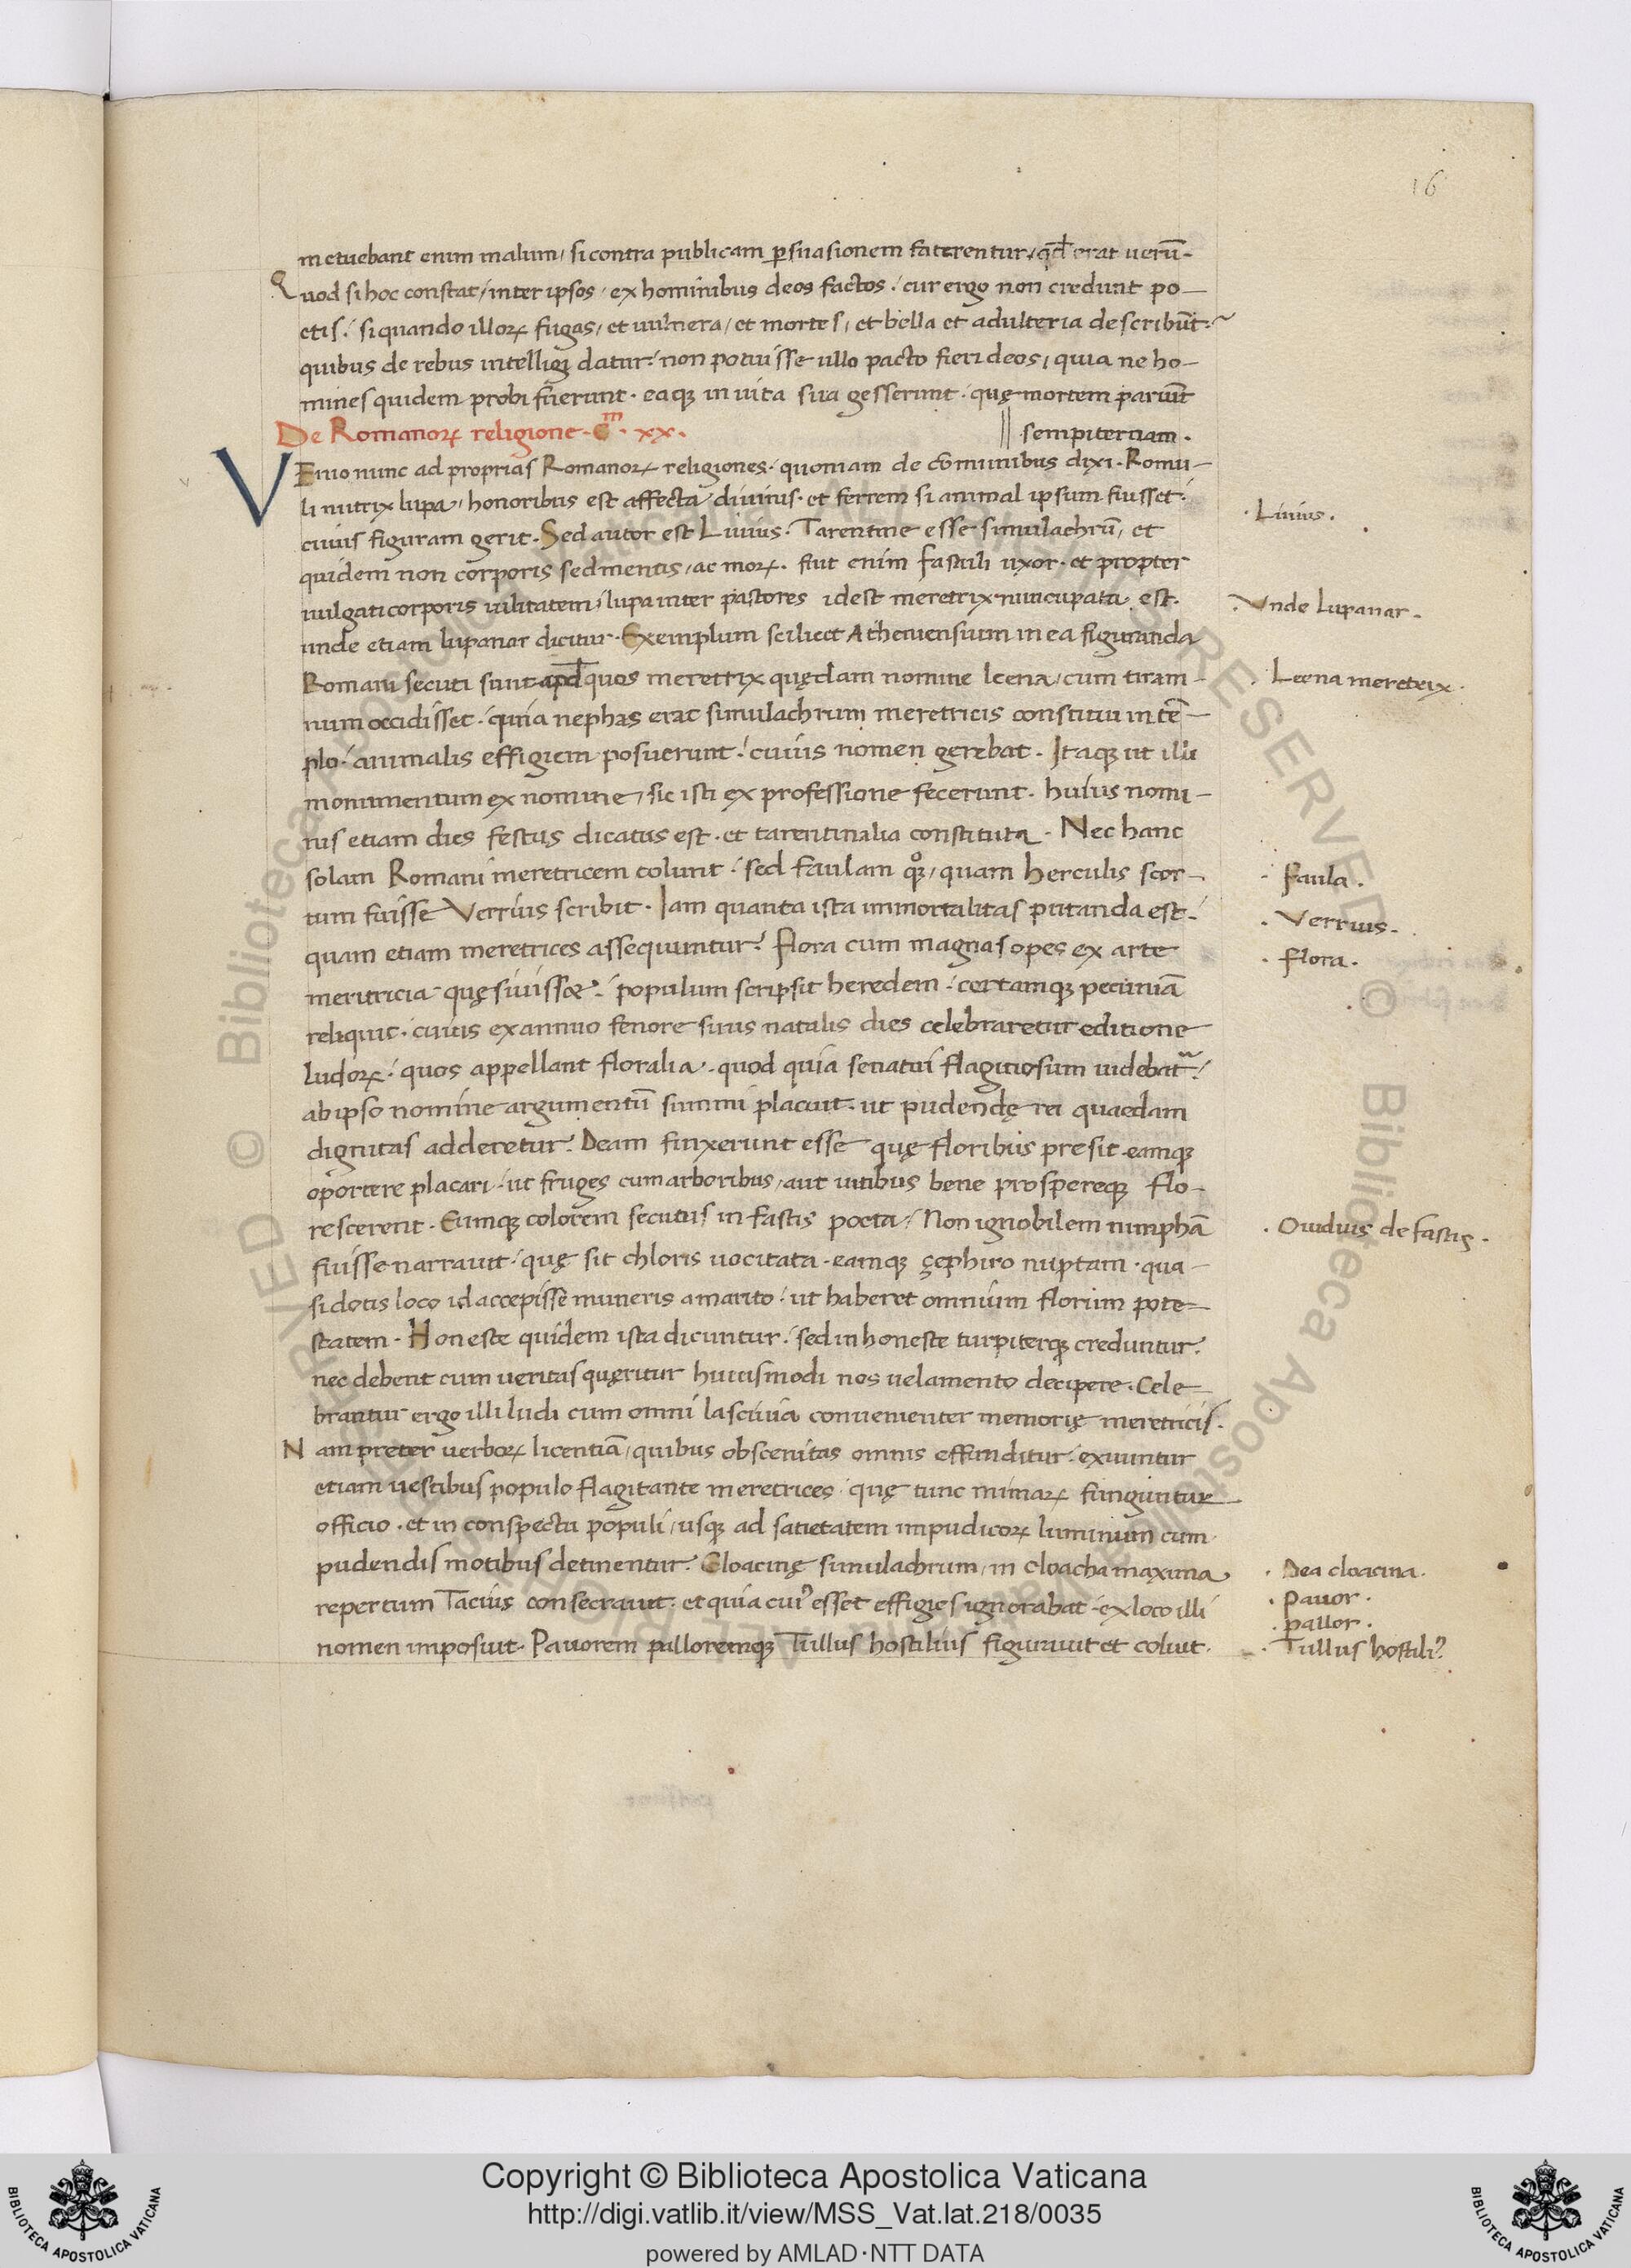 16
metuebant enim malum, si contra publicam ꝑsuasionem faterentur, qđ erat uerū.
Quod si hoc constat, inter ipsos, ex hominibus deos factos. cur ergo non credunt po-
etis. siquando illoꝝ fugas, et uulnera, et mortes, et bella et adulteria describūt.
quibus de rebus intelligi datur. non potuisse ullo pacto fieri deos, quia ne ho-
mines quidem probi fuerunt. eaqꝫ in uita sua gesserunt. quę mortem pariūt
De Romanoꝝ religione. Cᵐ. xx.
|| sempiternam.
VEnio nunc ad proprias Romanoꝝ religiones. quoniam de cōmunibus dixi. Romu-
li nutrix lupa, honoribus est affecta diuinis. et ferrem si animal ipsum fuisset.
cuius figuram gerit. Sed autor est Liuius. Tarentine esse simulachrū, et
quidem non corporis sed mentis, ac moꝝ. fuit enim faustuli uxor. et propter
uulgati corporis uilitatem, lupa inter pastores idest meretrix nuncupata est.
unde etiam lupanar dicitur. Exemplum scilicet Atheniensium in ea figuranda
Romani secuti sunt apđ quos meretrix quędam nomine leena, cum tiram-
num occidisset. quia nephas erat simulachrum meretricis constitui in tē-
plo. animalis effigiem posuerunt. cuius nomen gerebat. Itaqꝫ ut illi
monumentum ex nomine, sic isti ex professione fecerunt. huius nomi-
nis etiam dies festus dicatus est. et tarentinalia constituta. Nec hanc
solam Romani meretricem colunt. sed faulam qͦꝫ, quam herculis scor-
tum fuisse Verrius scribit. Iam quanta ista immortalitas putanda est.
quam etiam meretrices assequuntur. Flora cum magnas opes ex arte
meritricia quęsiuisset. populum scripsit heredem. certamqꝫ pecuniā
reliquit. cuius ex annuo fenore suus natalis dies celebraretur editione
ludoꝝ. quos appellant floralia. quod quia senatui flagitiosum uidebat᷑.
ab ipso nomine argumentū summi placuit. ut pudendę rei quaedam
dignitas adderetur. Deam finxerunt esse quę floribus presit. eamqꝫ
oportere placari. ut fruges cum arboribus, aut uitibus bene prospereqꝫ flo-
rescerent. Eumqꝫ colorem secutus in fastis poeta. Non ignobilem nimphā
fuisse narrauit. quę sit chloris uocitata. eamqꝫ çephiro nuptam. qua-
si dotis loco id accepisse muneris a marito. ut haberet omnium florum pote-
statem. Honeste quidem ista dicuntur. sed inhoneste turpiterqꝫ creduntur.
nec debent cum ueritas quęritur huiusmodi nos uelamento decipere. Cele-
brantur ergo illi ludi cum omni lasciuia conuenienter memorię meretricis.
Nam preter uerboꝝ licentiā, quibus obscenitas omnis effunditur. exuuntur
etiam uestibus populo flagitante meretrices. quę tunc mimaꝝ funguntur
officio. et in conspectu populi, usqꝫ ad satietatem impudicoꝝ luminum cum
pudendis motibus detinentur. Cloacinę simulachrum, in cloacha maxima
repertum Tacius consecrauit. et quia cuiꝰ esset effigies ignorabat. ex loco illi
nomen imposuit. Pauorem palloremqꝫ Tullus hostilius figurauit et coluit.
. Liuius.
. Vnde lupanar.
. Leena meretrix.
. faula.
. Verrius.
. flora.
. Ouidius de fastis.
. Dea cloacina.
. pauor.
. pallor.
. Tullus hostiliꝰ.
Copyright © Biblioteca Apostolica Vaticana
http://digi.vatlib.it/view/MSS_Vat.lat.218/0035
powered by AMLAD·NTT DATA
BIBLIOTECA APOSTOLICA VATICANA
BIBLIOTECA APOSTOLICA VATICANA